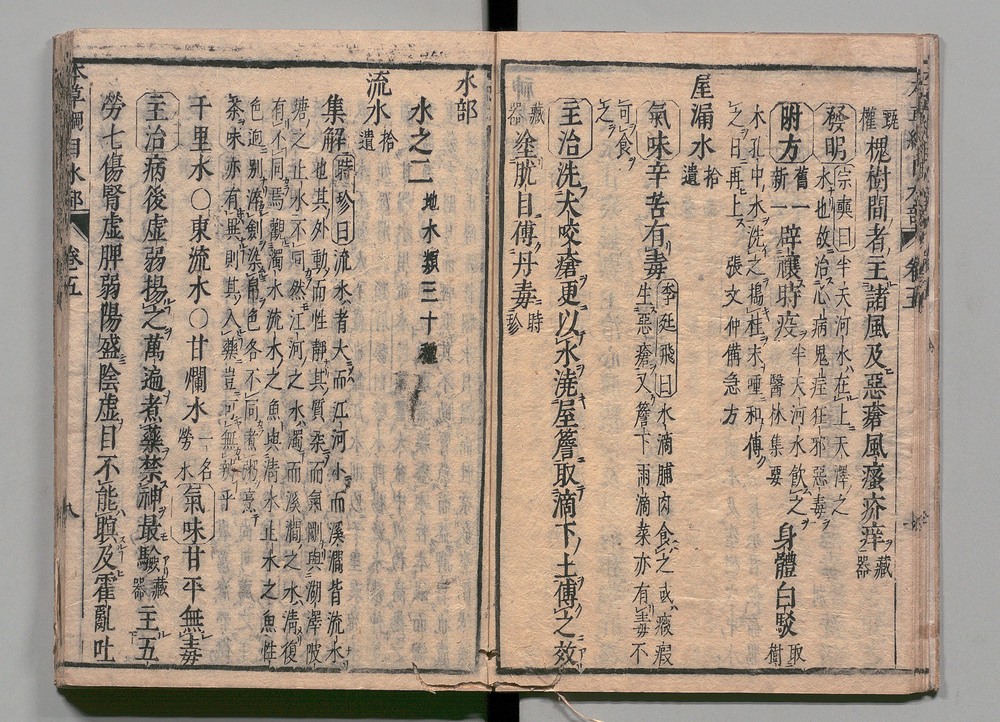 甄權槐樹間者主諸風及惡瘡風瘙疥痒藏器
發明宗奭曰半天河水在上天澤之
水也故治心病鬼疰狂邪惡毒
附方舊一新一辟禳時疫半天河水飲之醫林集要身體白駁取樹
木孔中水洗之搗桂末唾和傅
之日再上張文仲備急方
屋漏水拾遺
氣味辛苦有毒李廷飛曰水滴脯肉食之成癥瘕
生惡瘡又簷下雨滴菜亦有毒不
可食之
主治洗犬咬瘡更以水澆屋簷取滴下土傅之效
藏器塗胱目傅丹毒時珍
水部
水之二地水類三十種
流水拾遺
集解時珍曰流水者大而江河小而溪澗皆流水
也其外動而性靜其質柔而氣剛與湖澤陂
塘之止水不同然江河之水濁而溪澗之水清復
有不同焉觀濁水流水之魚與清水止水之魚性
色迥別淬劍染帛色各不同煮粥烹
茶味亦有異則其入藥豈可無辨乎
千里水○東流水○甘爛水一名勞水氣味甘平無毒
主治病後虛弱揚之萬遍煮藥禁神最驗藏器主五
勞七傷腎虛脾弱陽盛陰虛目不能瞑及霍亂吐
本草綱目水部 卷五 八